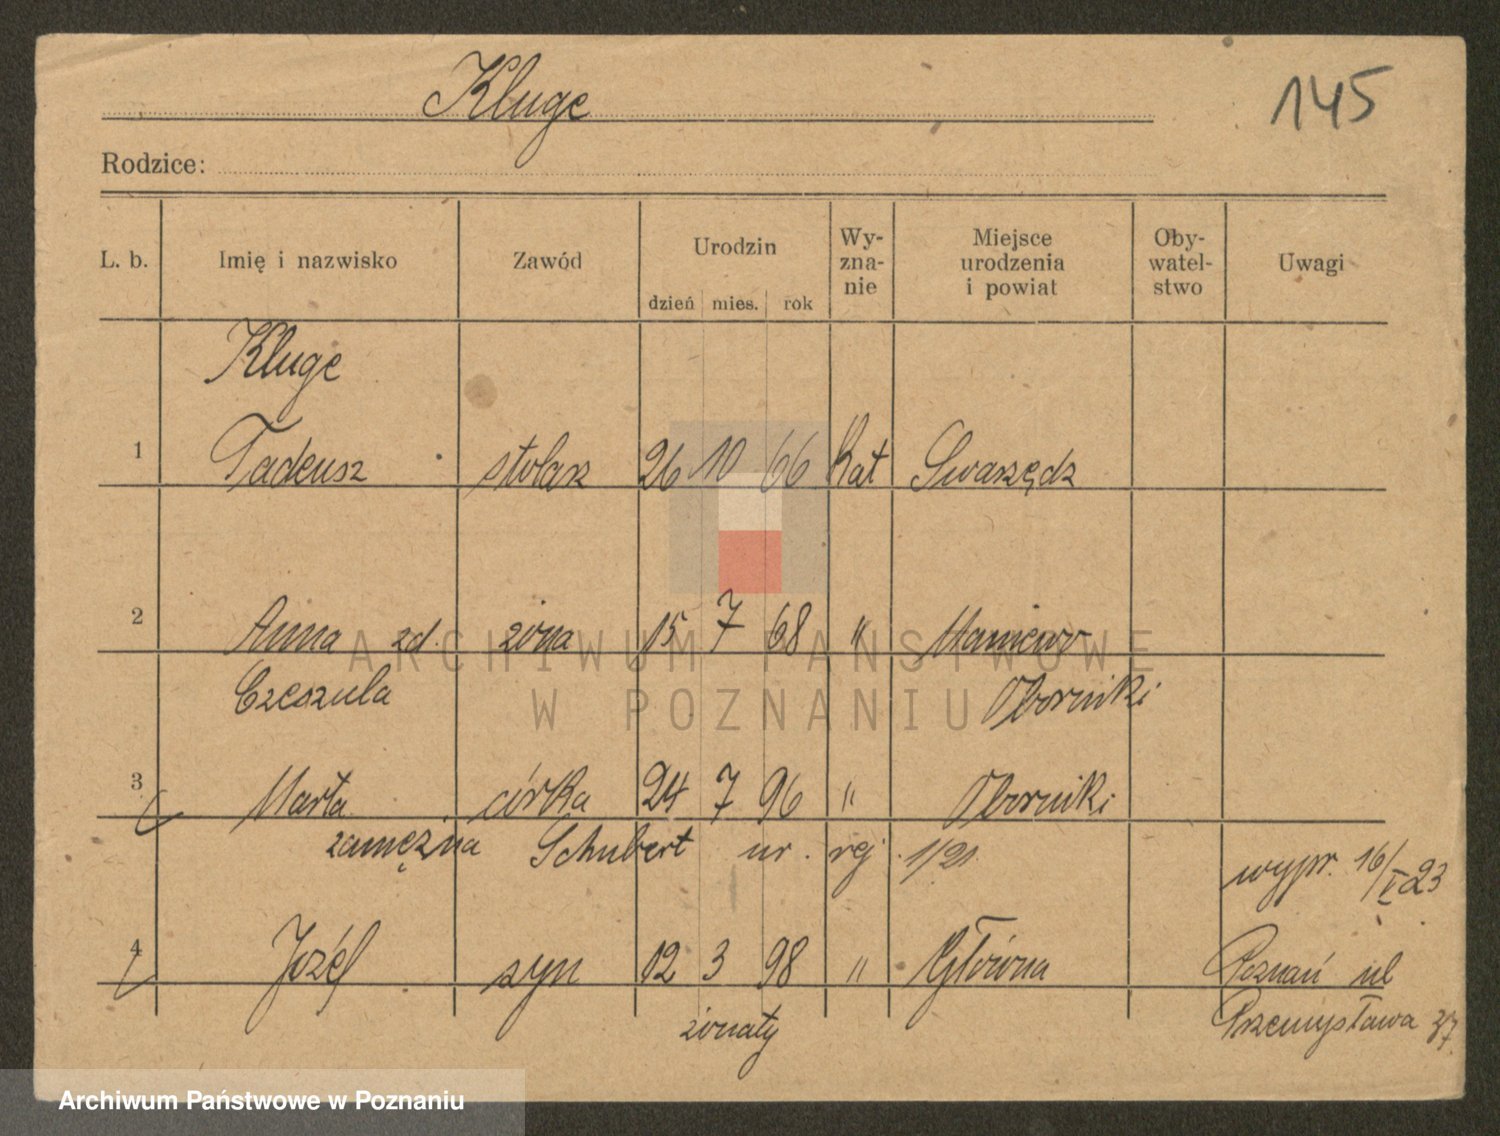 Kluge
145
Rodzice:
L. b. Imię i nazwisko Zawód Urodzin Wy-zna-nie Miejsce urodzenia i powiat Oby-watel-stwo Uwagi
dzień mies. rok
Kluge
1 Tadeusz stolarz 26 10 66 Kat Swarzędz
2 Anna zd. żona 15 7 68 " Maniewo
Czeszula Oborniki
3 Marta córka 24 7 96 " Oborniki
zamężna Schubert nr. rej. 1/21.
wypr. 16/I 23
4 Józef syn 12 3 98 " Główna Poznań ul
żonaty Przemysława 37
ARCHIWUM PAŃSTWOWE
W POZNANIU
Archiwum Państwowe w Poznaniu